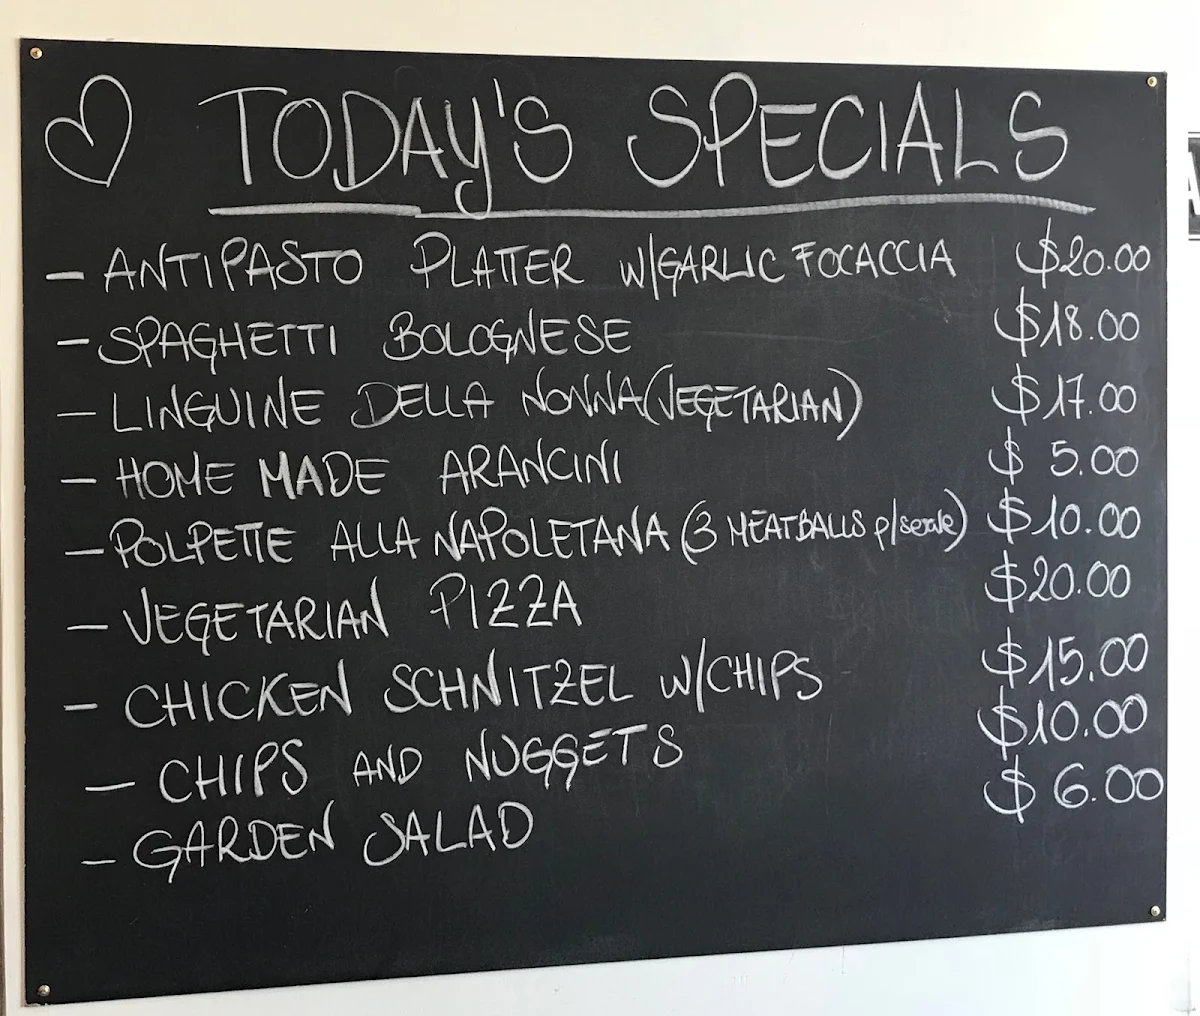 TODAY'S SPECIALS
- ANTIPASTO PLATTER W/GARLIC FOCACCIA $20.00
- SPAGHETTI BOLOGNESE $18.00
- LINGUINE DELLA NONNA (VEGETARIAN) $17.00
- HOME MADE ARANCINI $ 5.00
- POLPETTE ALLA NAPOLETANA (3 MEATBALLS p/serve) $10.00
- VEGETARIAN PIZZA $20.00
- CHICKEN SCHNITZEL W/CHIPS $15.00
- CHIPS AND NUGGETS $10.00
- GARDEN SALAD $ 6.00